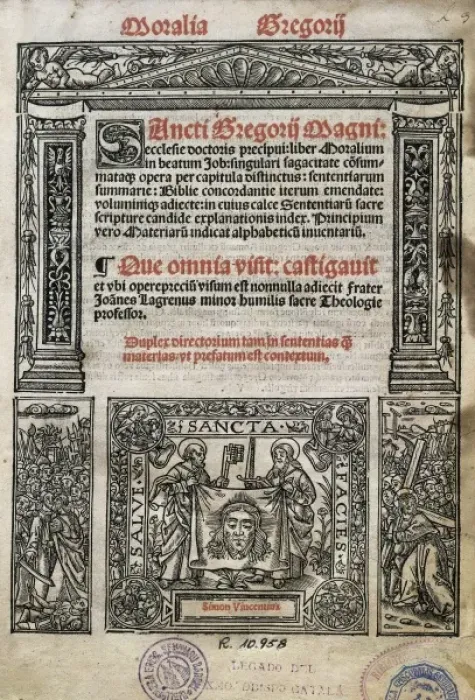 Moralia Gregorij
SAncti Gregorij Magni:
ecclesie doctoris precipui: liber Moralium
in beatum Job: singulari sagacitate cōsum-
mataqꝫ opera per capitula distinctus: sententiarum
summarie: Biblie concordantie iterum emendate:
voluminiqꝫ adiecte: in cuius calce Sententiarū sacre
scripture candide explanationis index. Principium
vero Materiarū indicat alphabeticū inuentariū.
¶ Que omnia visit: castigauit
et vbi operepreciū visum est nonnulla adiecit frater
Joānes Lagrenus minor humilis sacre Theologie
professor.
Duplex directorium tam in sententias qꝫ
materias: vt prefatum est contextum.
SALVE
SANCTA
FACIES
Simon Vincentius
R. 10.958
LEGADO DEL
OBISPO